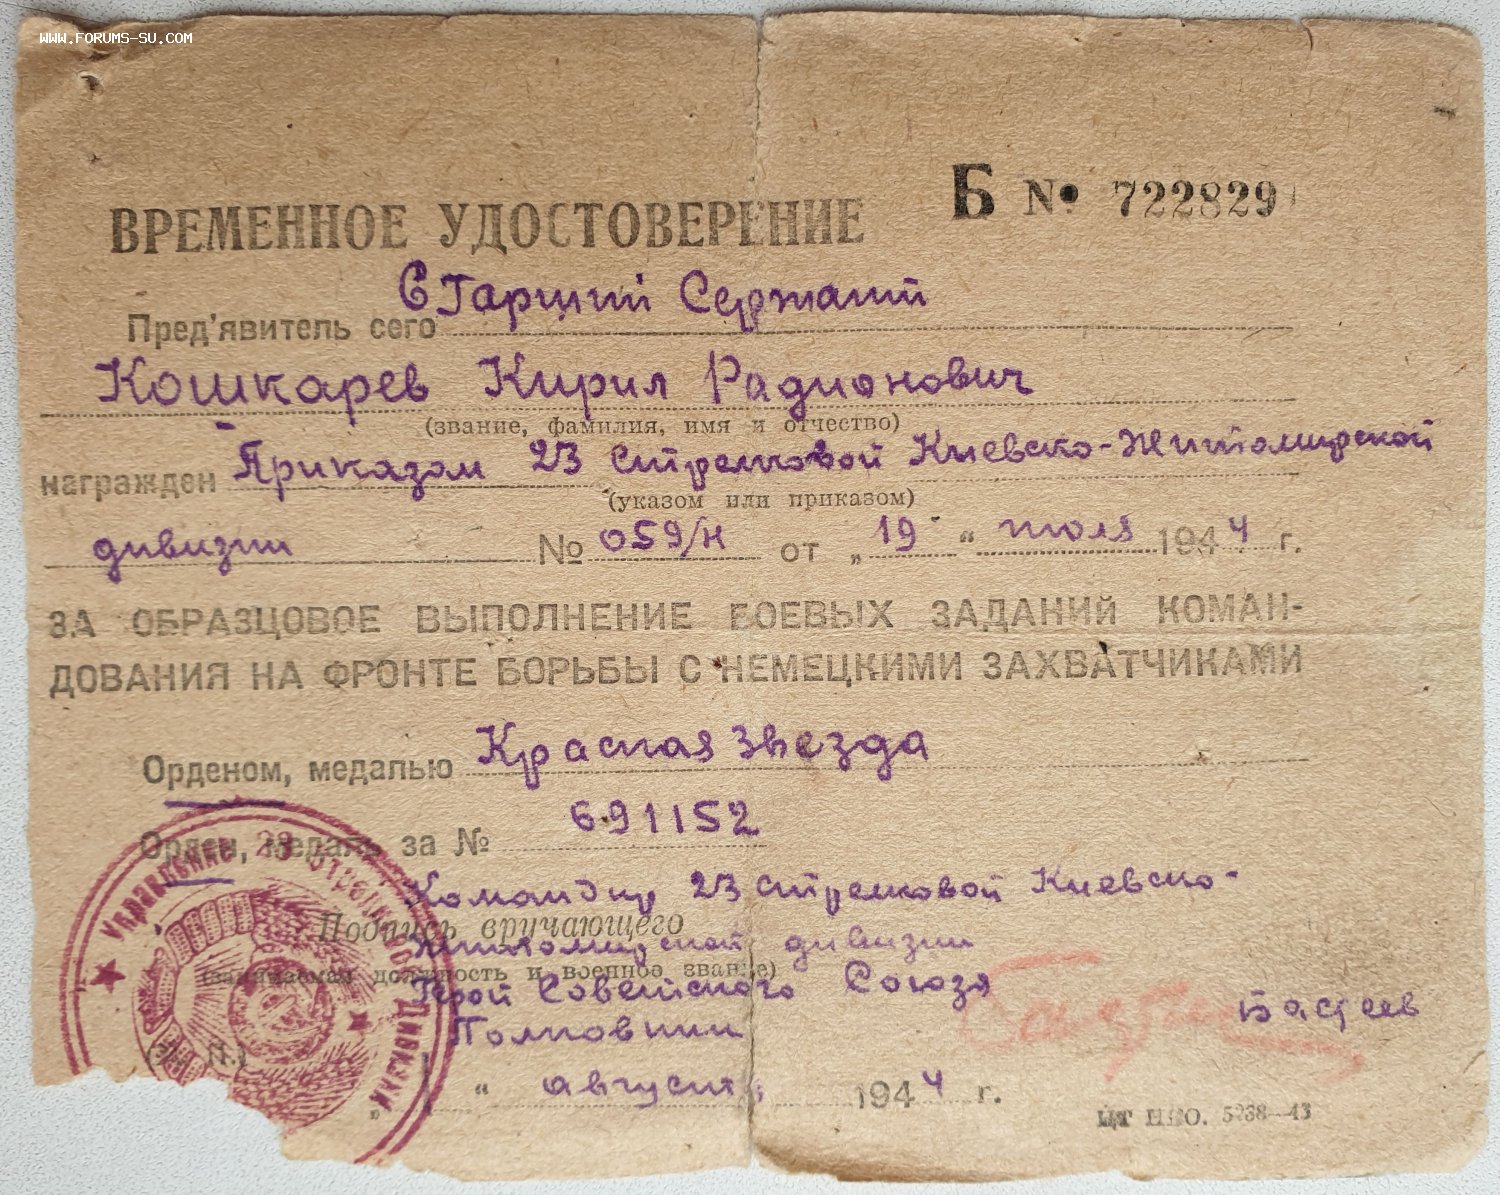 WWW.FORUMS-SU.COM
Б № 722829
ВРЕМЕННОЕ УДОСТОВЕРЕНИЕ
Старший Сержант
Пред'явитель сего
Кошкарев Кирил Радионович
(звание, фамилия, имя и отчество)
награжден Приказом 23 Стрелковой Киевско-Житомирской
(указом или приказом)
дивизии № 059/н от „19“ июля 1944 г.
ЗА ОБРАЗЦОВОЕ ВЫПОЛНЕНИЕ БОЕВЫХ ЗАДАНИЙ КОМАН-
ДОВАНИЯ НА ФРОНТЕ БОРЬБЫ С НЕМЕЦКИМИ ЗАХВАТЧИКАМИ
Орденом, медалью Красная Звезда
Орден, медаль за № 691152
Командир 23 стрелковой Киевско-
Подпись вручающего
Житомирской дивизии
(занимаемая должность и военное звание)
Герой Советского Союза
Полковник
(М. П.)
„ “ август 1944 г.
ЦТ НКО. 5238—43
Управление 23 Стрелковой Дивизии